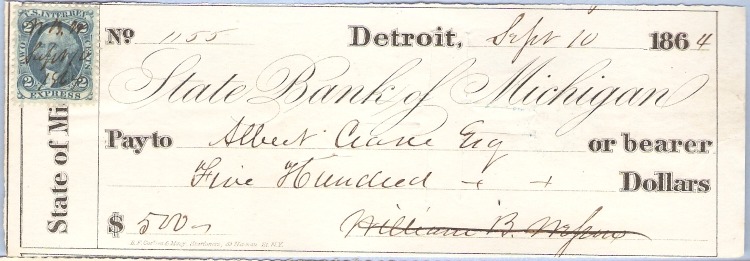 U.S. INTER. REV.
2 2
EXPRESS
State of Mi
No 1155 Detroit, Sept 10 1864
State Bank of Michigan
Pay to Albert Crane Esq or bearer
Five Hundred Dollars
$ 500
William B. Wesson